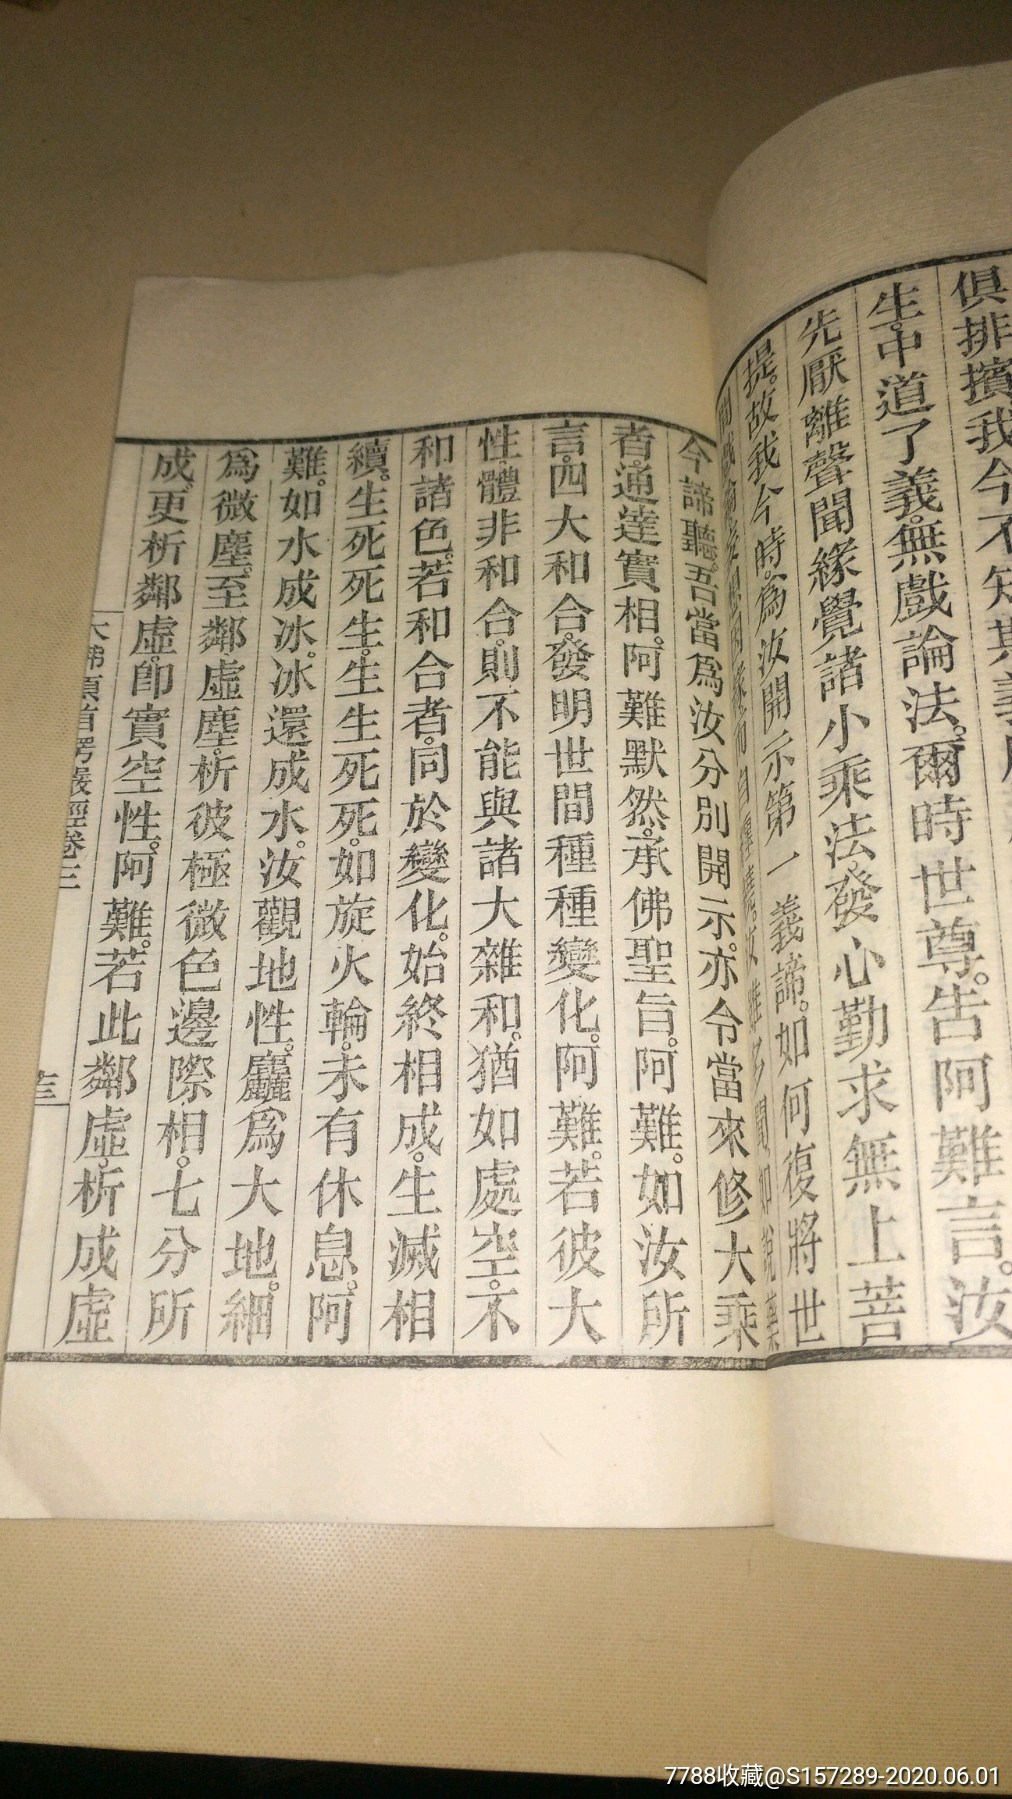 俱排擯我今不知
生。中道了義。無戲論法。爾時世尊。告阿難言。汝
先厭離聲聞緣覺諸小乘法。發心勤求無上菩
提。故我今時。爲汝開示第一義諦。如何復將世
今諦聽。吾當爲汝分別開示。亦令當來修大乘
者。通達實相。阿難默然。承佛聖旨。阿難。如汝所
言。四大和合。發明世間種種變化。阿難。若彼大
性。體非和合。則不能與諸大雜和。猶如虛空。不
和諸色。若和合者。同於變化。始終相成。生滅相
續。生死死生。生生死死。如旋火輪。未有休息。阿
難。如水成冰。冰還成水。汝觀地性。麤爲大地。細
爲微塵。至鄰虛塵。析彼極微色邊際相。七分所
成。更析鄰虛。卽實空性。阿難。若此鄰虛。析成虛
大佛頂首楞嚴經卷三
7788收藏@S157289-2020.06.01